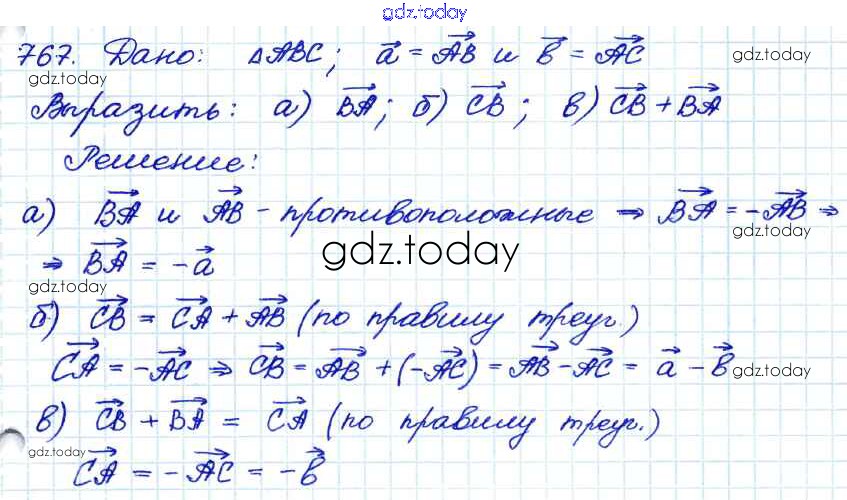 gdz.today
767. Дано: △ABC; a⃗ = AB⃗ и b⃗ = AC⃗
gdz.today
gdz.today
Выразить: а) BA⃗; б) CB⃗; в) CB⃗ + BA⃗
Решение:
а) BA⃗ и AB⃗ - противоположные ⇒ BA⃗ = -AB⃗ ⇒
gdz.today
⇒ BA⃗ = -a⃗
gdz.today
gdz.today
б) CB⃗ = CA⃗ + AB⃗ (по правилу треуг.)
CA⃗ = -AC⃗ ⇒ CB⃗ = AB⃗ + (-AC⃗) = AB⃗ - AC⃗ = a⃗ - b⃗
gdz.today
в) CB⃗ + BA⃗ = CA⃗ (по правилу треуг.)
gdz.today
CA⃗ = -AC⃗ = -b⃗